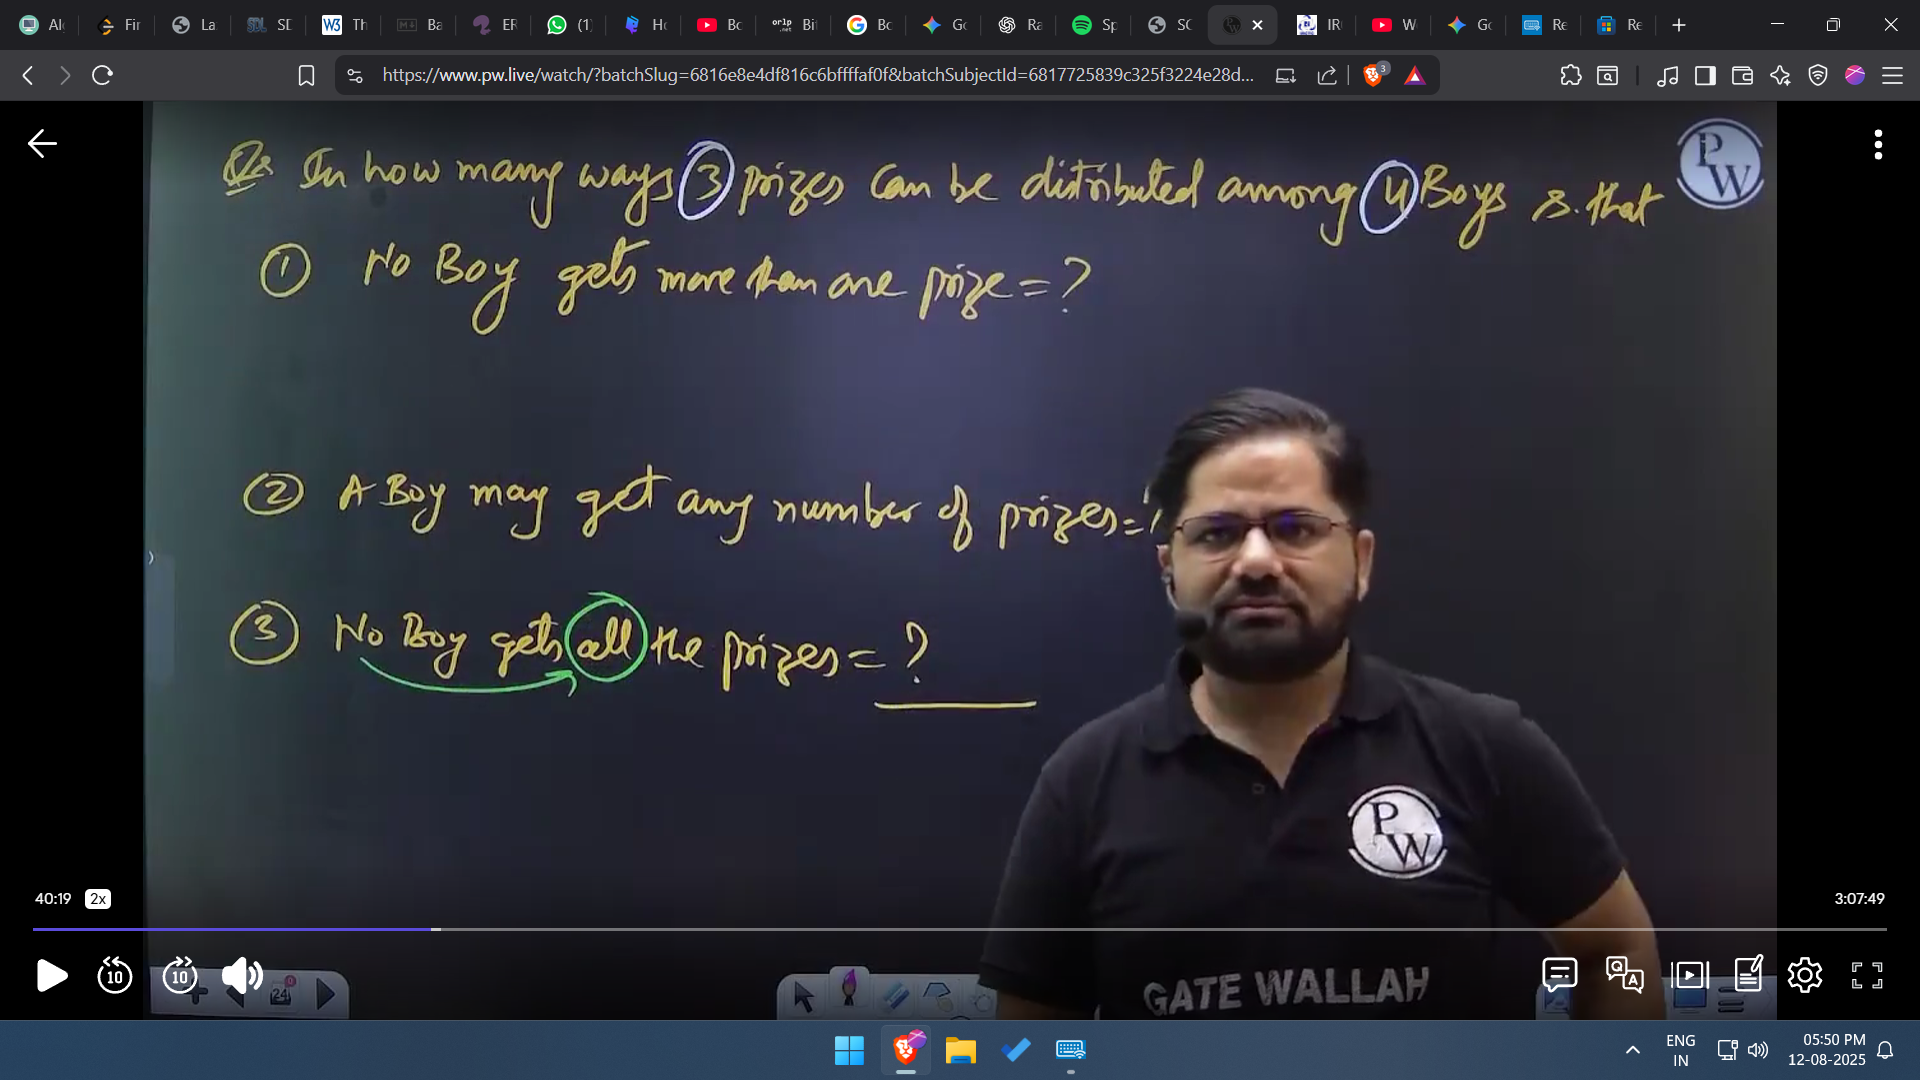 Al
Fir
La
SE
Th
Ba
ER
(1)
Ho
Bo
Bit
Bo
Go
Ra
Sp
SC
IR
W
Go
Re
Re
https://www.pw.live/watch/?batchSlug=6816e8e4df816c6bffffaf0f&batchSubjectId=6817725839c325f3224e28d...
3
Qs In how many ways 3 prizes can be distributed among 4 Boys s.that
PW
① No Boy gets more than one prize = ?
② A Boy may get any number of prizes = ?
③ No Boy gets all the prizes = ?
PW
GATE WALLAH
40:19 2x
3:07:49
10 10
24
ENG
IN
05:50 PM
12-08-2025